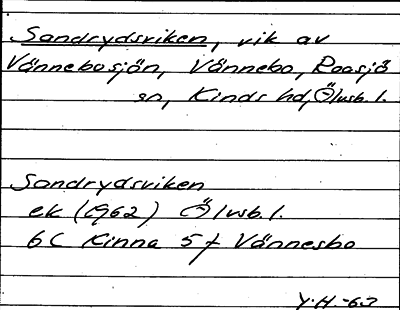 Sandrydsviken, vik av
Vännebosjön, Vännebo, Roasjö
sn, Kinds hd, Älvsb. l.
Sandrydsviken
ek (1962) Älvsb. l.
6C Kinna 5f Vännesbo
Y.H. -63